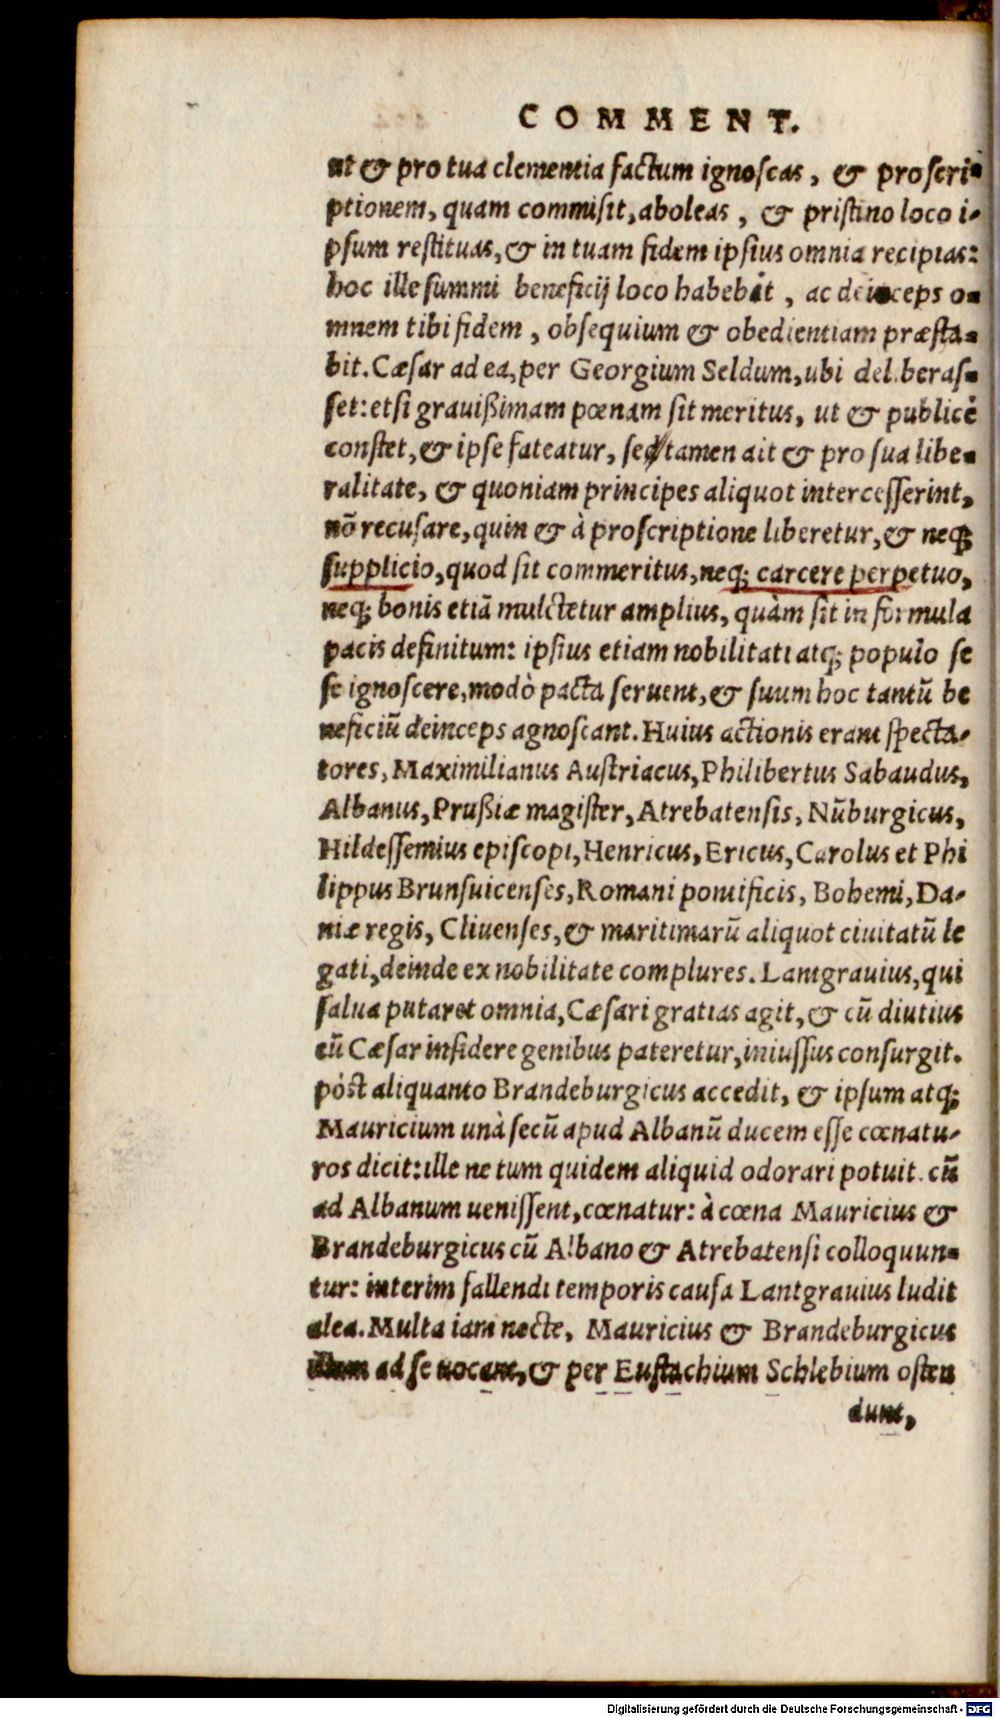 COMMENT.
ut & pro tua clementia factum ignoscas, & proscri-
ptionem, quam commisit, aboleas, & pristino loco i-
psum restituas, & in tuam fidem ipsius omnia recipias:
hoc ille summi beneficij loco habebit, ac deinceps o-
mnem tibi fidem, obsequium & obedientiam præsta-
bit. Cæsar ad ea, per Georgium Seldum, ubi deliberas-
set: etsi grauißimam pœnam sit meritus, ut & publicè
constet, & ipse fateatur, sed tamen ait & pro sua libe-
ralitate, & quoniam principes aliquot intercesserint,
nō recusare, quin & à proscriptione liberetur, & neq;
supplicio, quod sit commeritus, neq; carcere perpetuo,
neq; bonis etiā mulctetur amplius, quàm sit in formula
pacis definitum: ipsius etiam nobilitati atq; populo se
se ignoscere, modò pacta seruent, & suum hoc tantū be
neficiū deinceps agnoscant. Huius actionis erant specta-
tores, Maximilianus Austriacus, Philibertus Sabaudus,
Albanus, Prußiæ magister, Atrebatensis, Nūburgicus,
Hildessemius episcopi, Henricus, Ericus, Carolus et Phi
lippus Brunsuicenses, Romani pontificis, Bohemi, Da-
niæ regis, Cliuenses, & maritimarū aliquot ciuitatū le
gati, deinde ex nobilitate complures. Lantgrauius, qui
salua putaret omnia, Cæsari gratias agit, & cū diutius
eū Cæsar insidere genibus pateretur, iniussus consurgit.
pòst aliquanto Brandeburgicus accedit, & ipsum atq;
Mauricium unà secū apud Albanū ducem esse cœnatu-
ros dicit: ille ne tum quidem aliquid odorari potuit. cū
ad Albanum uenissent, cœnatur: à cœna Mauricius &
Brandeburgicus cū Albano & Atrebatensi colloquun-
tur: interim fallendi temporis causa Lantgrauius ludit
alea. Multa iam nocte, Mauricius & Brandeburgicus
illum ad se uocant, & per Eustachium Schlebium osten
dunt,
Digitalisierung gefördert durch die Deutsche Forschungsgemeinschaft - DFG